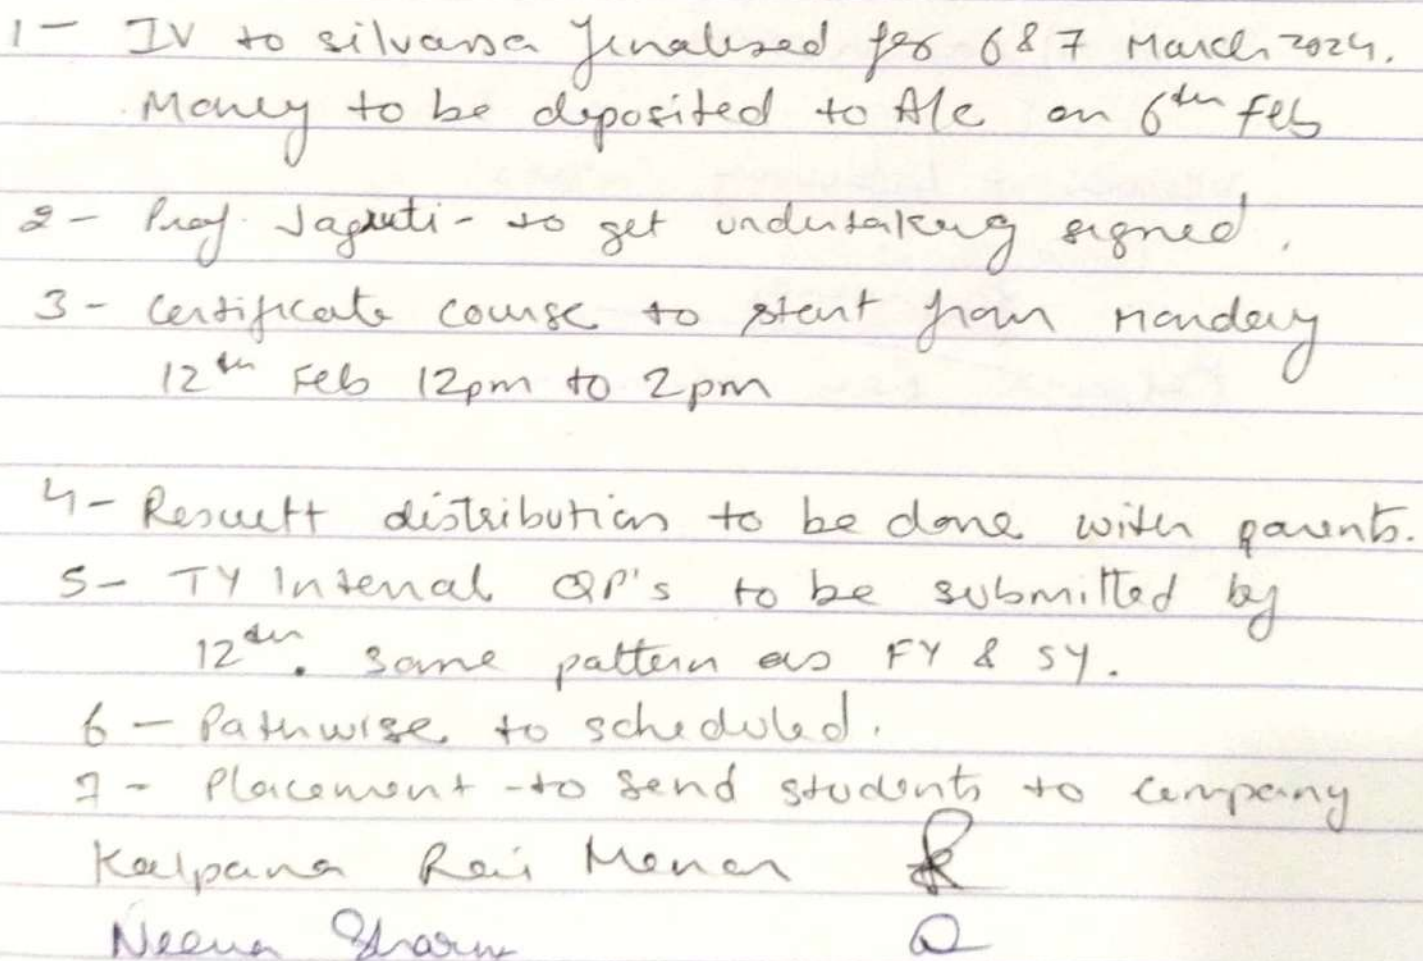 1- IV to silvassa finalised for 6 & 7 March 2024.
Money to be deposited to A/c on 6th Feb
2- Prof. Jagruti - to get undertaking signed.
3- Certificate course to start from Monday
12th Feb 12pm to 2pm
4- Resultt distribution to be done with parents.
5- TY Internal QP's to be submitted by
12th. Same pattern as FY & SY.
6- Pathwise to scheduled.
7- Placement - to send students to company
Kalpana Rai Menon
Neena Sharma